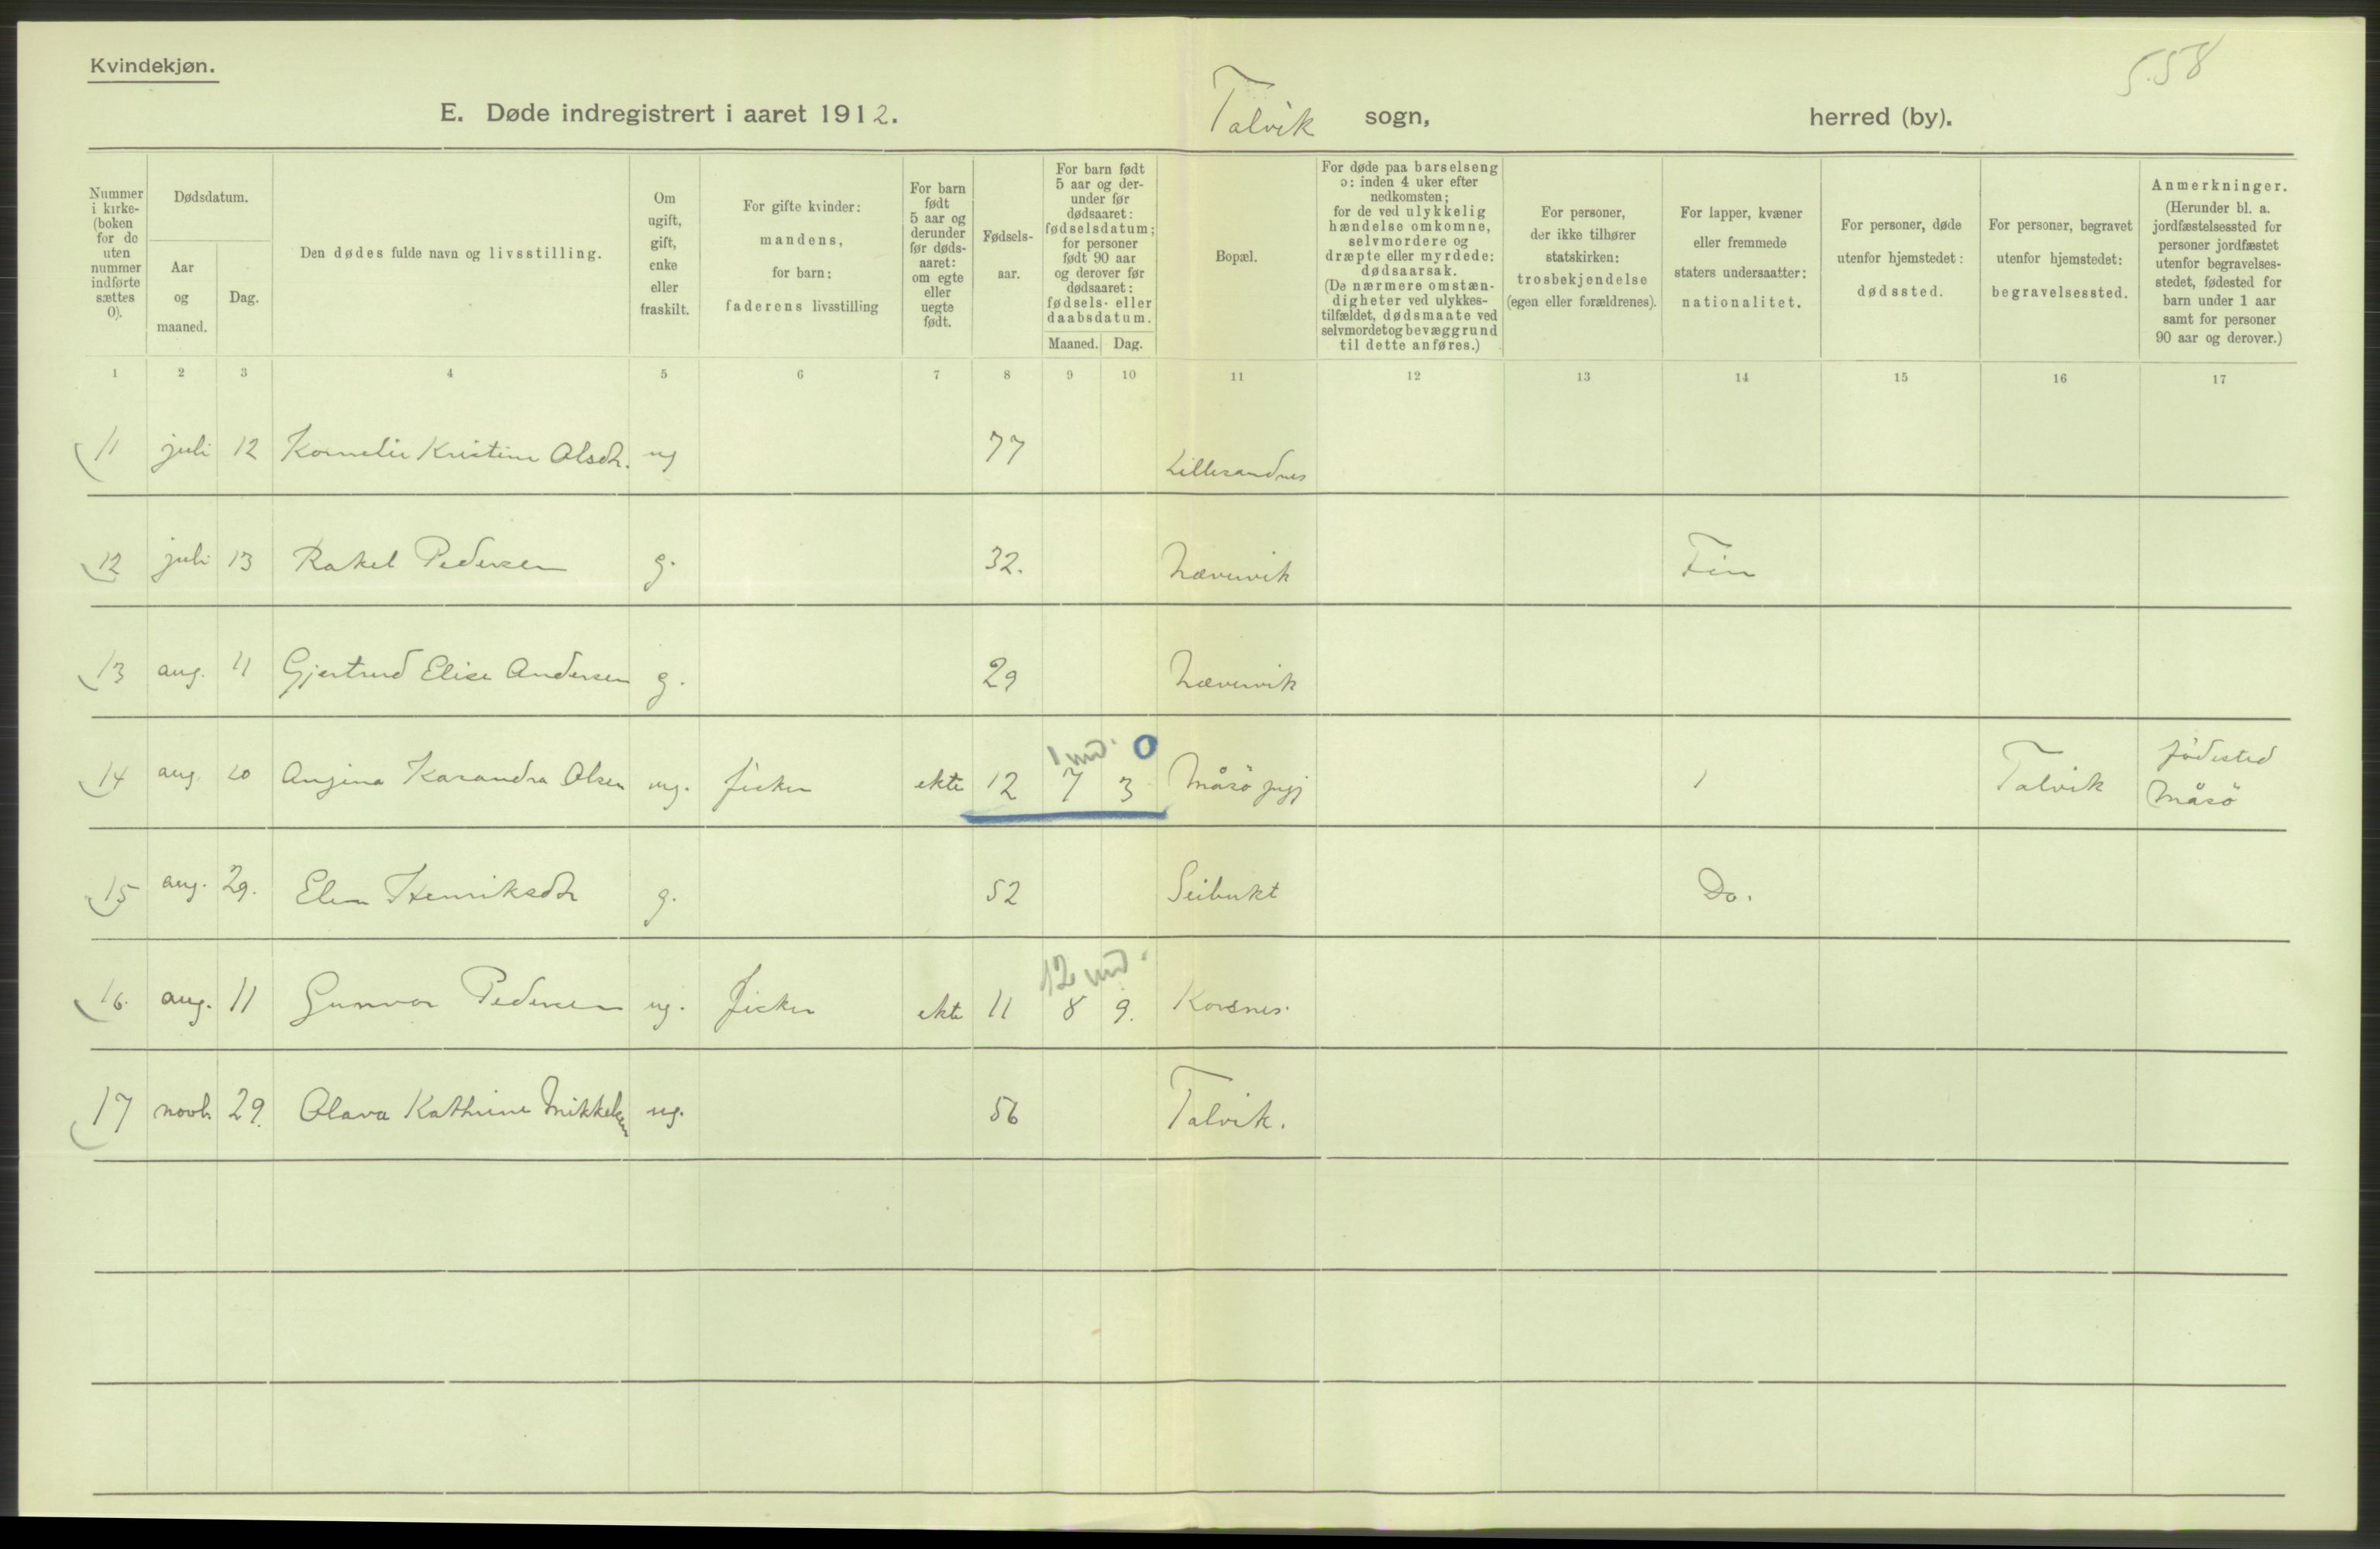 Kvindekjøn.
5.58
E. Døde indregistrert i aaret 1912.
Talvik sogn, herred (by).
Nummer i kirke-(boken for de uten nummer indførte sættes 0).
Dødsdatum.
Aar og maaned.
Dag.
Den dødes fulde navn og livsstilling.
Om ugift, gift, enke eller fraskilt.
For gifte kvinder: mandens, for barn: faderens livsstilling
For barn født 5 aar og derunder før døds-aaret: om egte eller uegte født.
Fødsels-aar.
For barn født 5 aar og der-under før dødsaaret: fødselsdatum; for personer født 90 aar og derover før dødsaaret: fødsels- eller daabsdatum.
Maaned. Dag.
Bopæl.
For døde paa barselseng ɔ: inden 4 uker efter nedkomsten; for de ved ulykkelig hændelse omkomne, selvmordere og dræpte eller myrdede: dødsaarsak. (De nærmere omstæn-digheter ved ulykkes-tilfældet, dødsmaate ved selvmordet og bevæggrund til dette anføres.)
For personer, der ikke tilhører statskirken: trosbekjendelse (egen eller forældrenes).
For lapper, kvæner eller fremmede staters undersaatter: nationalitet.
For personer, døde utenfor hjemstedet: dødssted.
For personer, begravet utenfor hjemstedet: begravelsessted.
Anmerkninger. (Herunder bl. a. jordfæstelsessted for personer jordfæstet utenfor begravelses-stedet, fødested for barn under 1 aar samt for personer 90 aar og derover.)
1 2 3 4 5 6 7 8 9 10 11 12 13 14 15 16 17
11 juli 12 Kornelie Kristine Olsdr. ug 77 Lillesandnes
12 juli 13 Rakel Pedersen g. 32. Læververvik Fin
13 aug. 11 Gjertrud Elise Andersen g. 29
1 md. 0
14 aug. 20 Anjina Kasandra Olsen ug. fisker ekte 12 7 3 Måsö pgj 1 Talvik födested Måsö
15 aug. 29. Elen Henriksdr g. 52 Seibukt Do.
12 md.
16. aug. 11 Gunvor Pedersen ug. fisker ekte 11 8 9. Korsnes.
17 novb. 29. Olava Kathrine Mikkelsen ug. 56 Talvik.